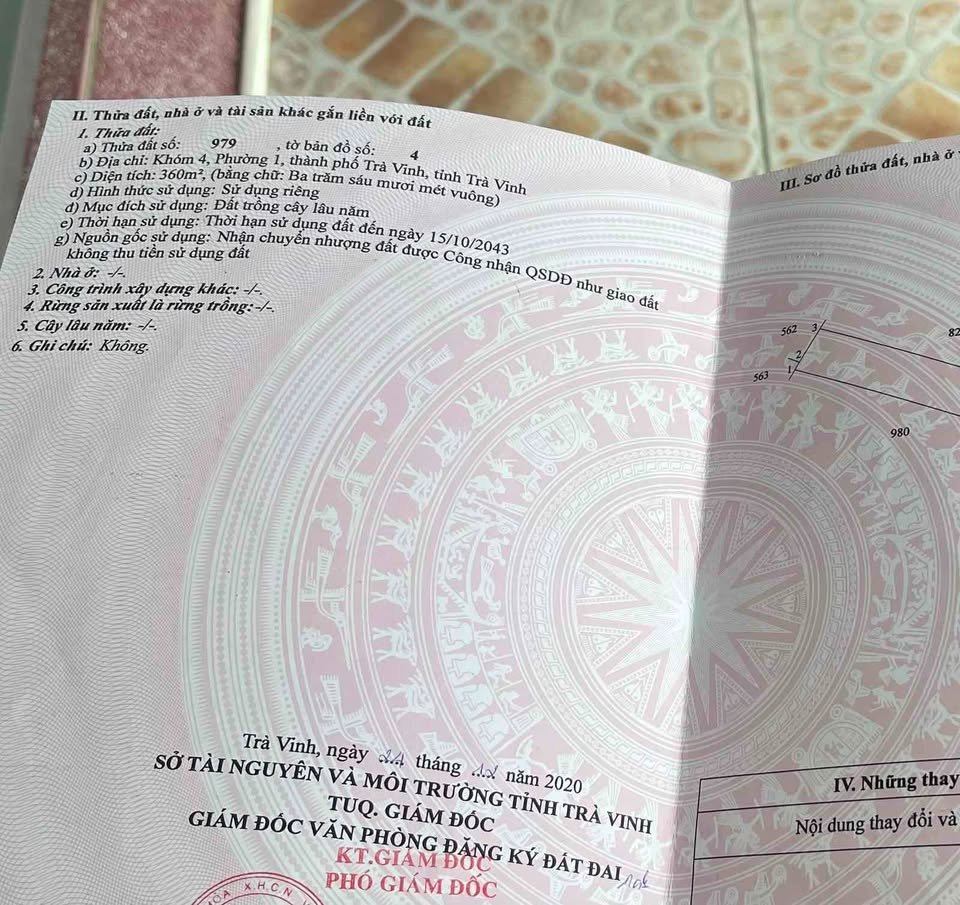 II. Thửa đất, nhà ở và tài sản khác gắn liền với đất
1. Thửa đất:
a) Thửa đất số: 979 , tờ bản đồ số: 4
b) Địa chỉ: Khóm 4, Phường 1, thành phố Trà Vinh, tỉnh Trà Vinh
c) Diện tích: 360m², (bằng chữ: Ba trăm sáu mươi mét vuông)
d) Hình thức sử dụng: Sử dụng riêng
đ) Mục đích sử dụng: Đất trồng cây lâu năm
e) Thời hạn sử dụng: Thời hạn sử dụng đất đến ngày 15/10/2043
g) Nguồn gốc sử dụng: Nhận chuyển nhượng đất được Công nhận QSDĐ như giao đất
không thu tiền sử dụng đất
2. Nhà ở: -/-.
3. Công trình xây dựng khác: -/-.
4. Rừng sản xuất là rừng trồng: -/-.
5. Cây lâu năm: -/-.
6. Ghi chú: Không.
Trà Vinh, ngày tháng năm 2020
SỞ TÀI NGUYÊN VÀ MÔI TRƯỜNG TỈNH TRÀ VINH
TUQ. GIÁM ĐỐC
GIÁM ĐỐC VĂN PHÒNG ĐĂNG KÝ ĐẤT ĐAI
KT.GIÁM ĐỐC
PHÓ GIÁM ĐỐC
X.H.C.N
III. Sơ đồ thửa đất, nhà ở
562 3 82
2
563 1
980
IV. Những thay
Nội dung thay đổi và